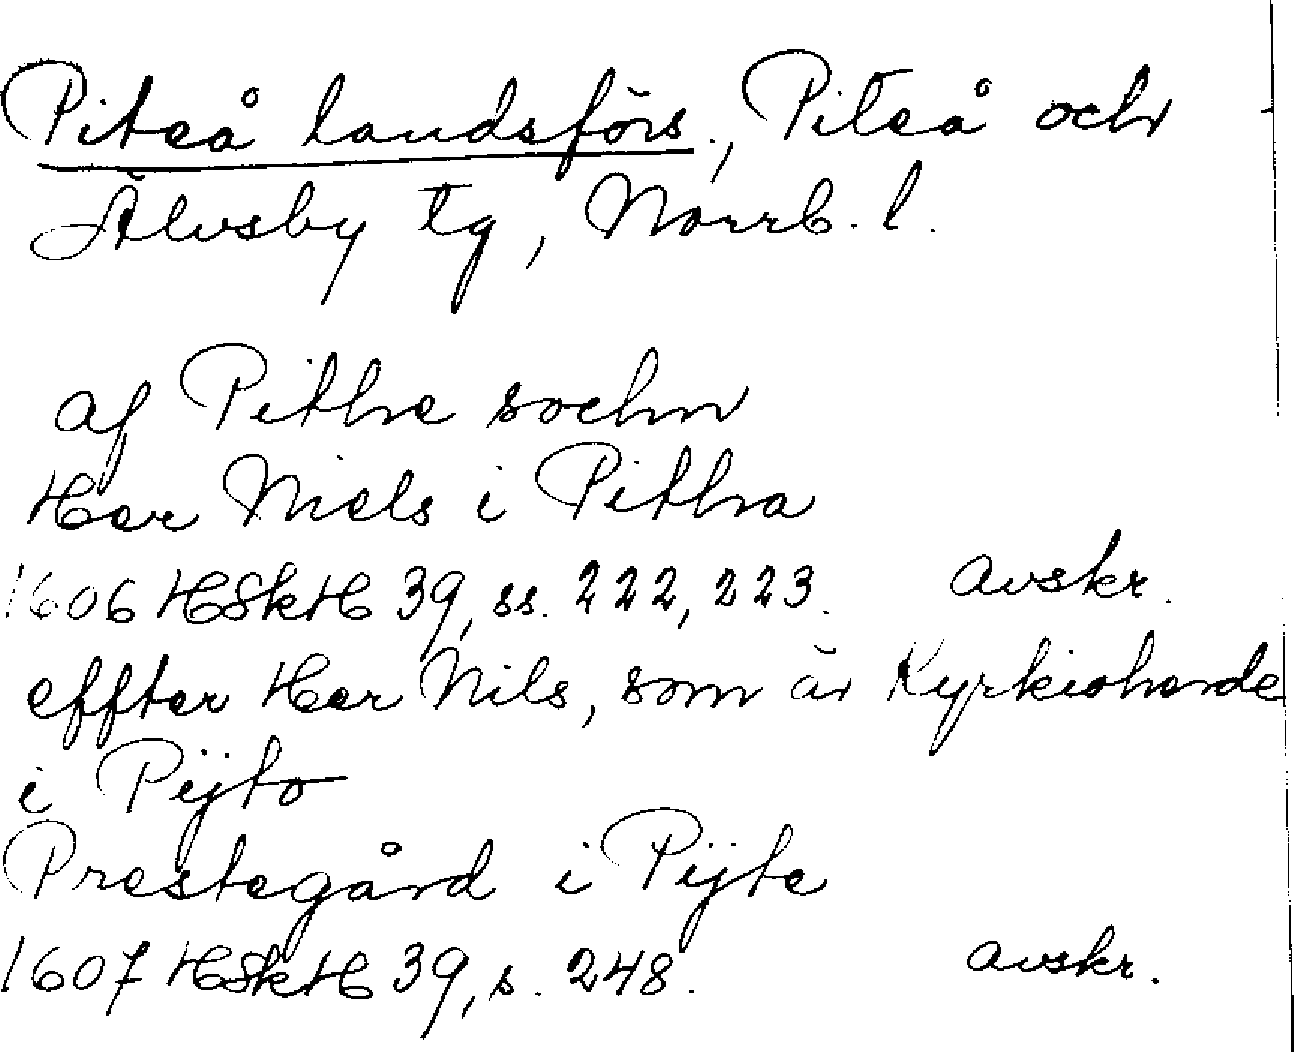 Piteå landsförs., Piteå och
Älvsby tg, Norrb. l.
af Pithe sochn
Her Niels i Pitha
1606 HSkH 39, ss. 222, 223. avskr.
effter Her Nils, som är Kyrkioherde
i Pijto
Prestegård i Pijte
1607 HSkH 39, s. 248. avskr.